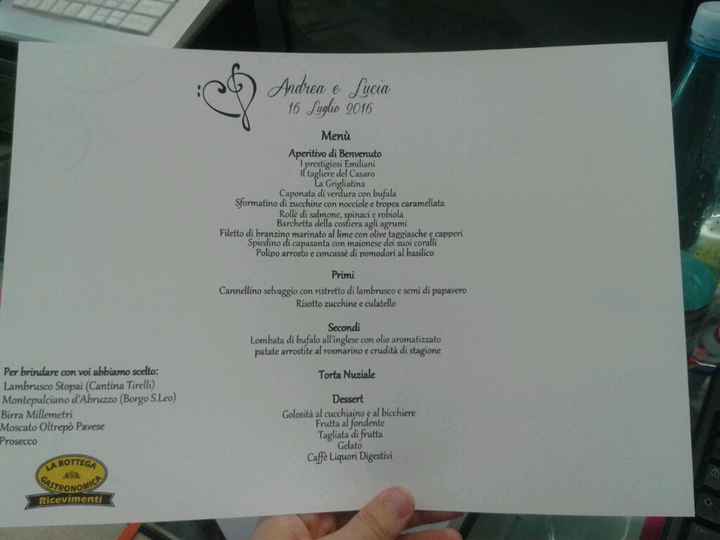 Andrea e Lucia
16 Luglio 2016
Menù
Aperitivo di Benvenuto
I prestigiosi Emiliani
Il tagliere del Casaro
La Grigliatina
Caponata di verdura con bufala
Sformatino di zucchine con nocciole e tropea caramellata
Rollè di salmone, spinaci e robiola
Barchetta della costiera agli agrumi
Filetto di branzino marinato al lime con olive taggiasche e capperi
Spiedino di capasanta con maionese dei suoi coralli
Polipo arrosto e concassè di pomodori al basilico
Primi
Cannellino selvaggio con ristretto di lambrusco e semi di papavero
Risotto zucchine e culatello
Secondi
Lombata di bufalo all'inglese con olio aromatizzato
patate arrostite al rosmarino e crudità di stagione
Torta Nuziale
Dessert
Golosità al cucchiaino e al bicchiere
Frutta al fondente
Tagliata di frutta
Gelato
Caffè Liquori Digestivi
Per brindare con voi abbiamo scelto:
Lambrusco Stopai (Cantina Tirelli)
Montepalciano d'Abruzzo (Borgo S.Leo)
Birra Millemetri
Moscato Oltrepò Pavese
Prosecco
LA BOTTEGA
GASTRONOMICA
Ricevimenti